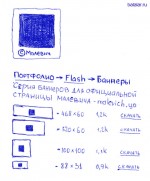 © Малевич
Портфолио → Flash → Баннеры
Серия баннеров для официальной
страницы малевича - malevich.ya
- 468×60 12k скачать
- 120×60 1,2k скачать
- 100×100 1k скачать
- 88×31 0,9k скачать